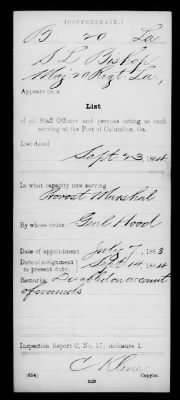 (CONFEDERATE.)
B 20 La
S L Bishop
Maj 20 Regt La,
Appears on a
List
of all Staff Officers and persons acting as such
serving at the Post of Columbus, Ga.
List dated
Sept 23, 1864
In what capacity now serving
Provost Marshal
By whose order Genl Hood
Date of appointment July 7, 1863
Date of assignment to present date: Sept 14, 1864
Remarks: Disabled on account
of wounds
Inspection Report C, No. 17; inclosure 1.
C Kline
(654) Copyist.